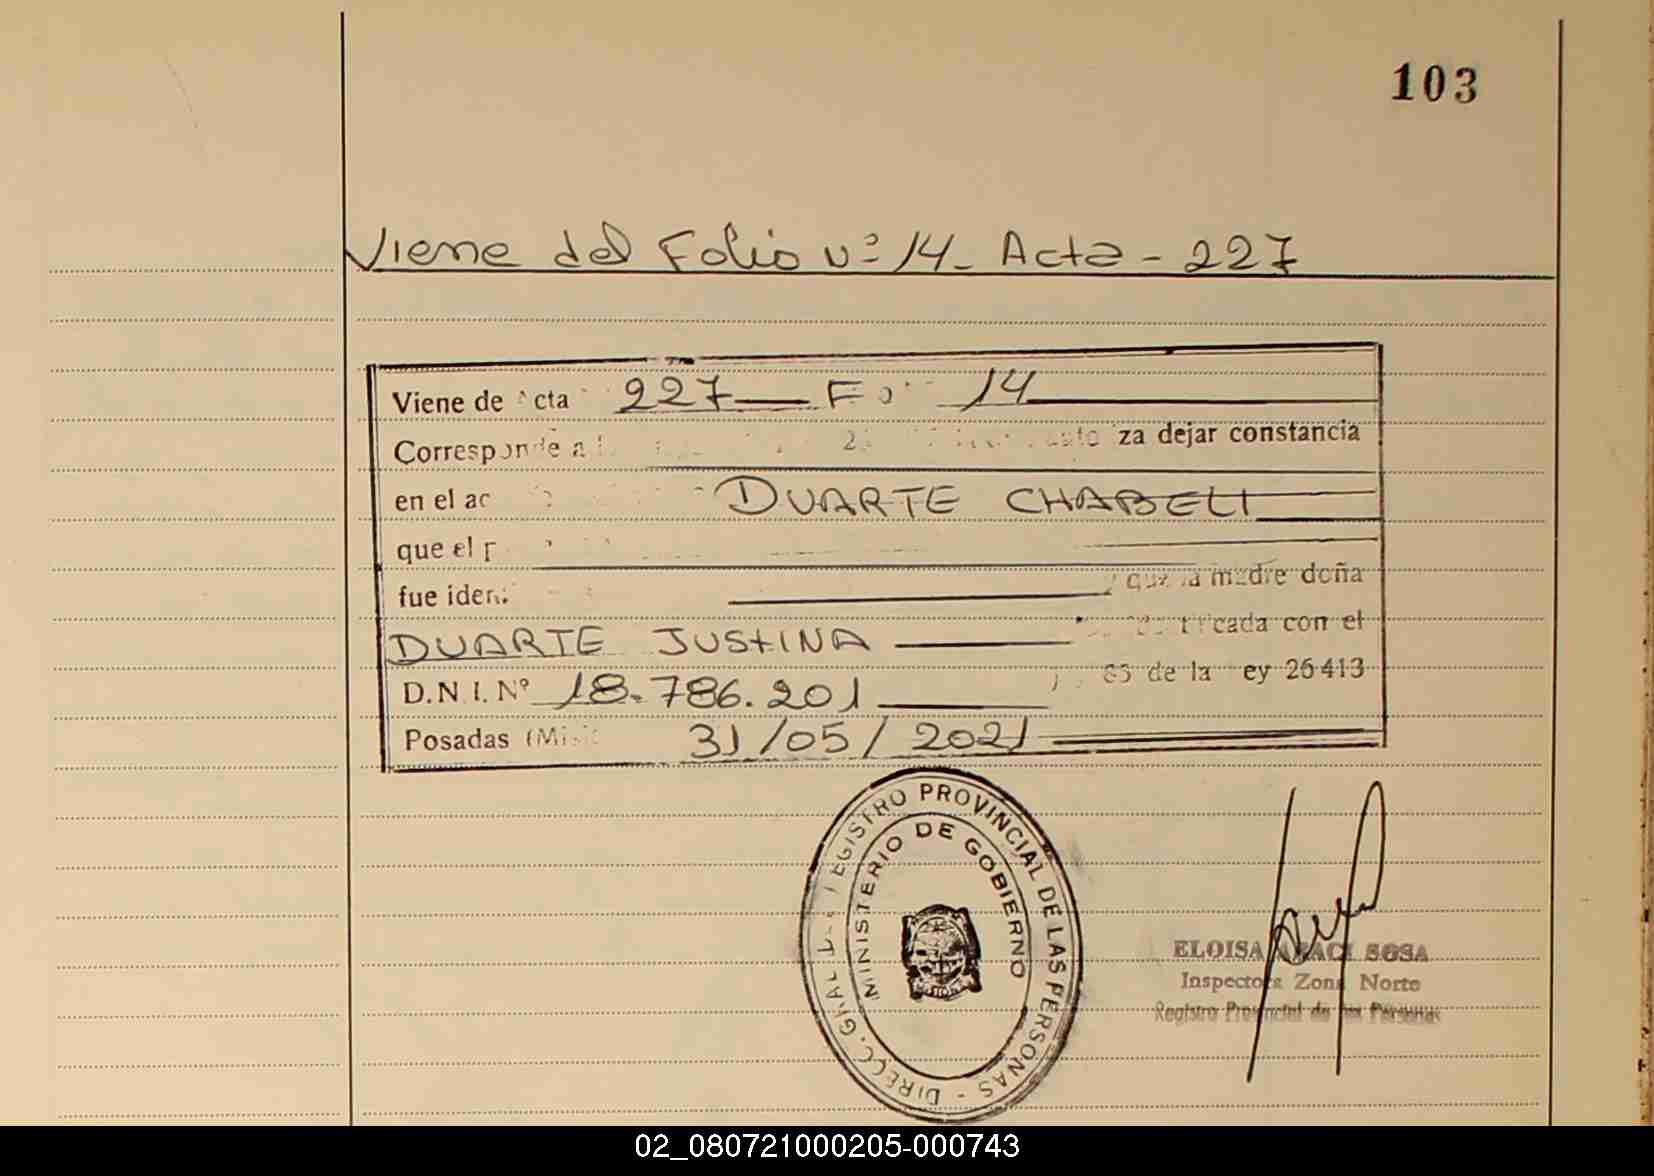 103
Viene del Folio Nº 14- Acta - 227
Viene de Acta 227 Fo 14
Corresponde a za dejar constancia
en el ac DUARTE CHABELI
que el
fue iden y que la madre doña
DUARTE JUSTINA cada con el
D.N.I. Nº 18.786.201 85 de la ey 26413
Posadas (Mis 31/05/2021
DIRECC. GRAL DE REGISTRO PROVINCIAL DE LAS PERSONAS -
MINISTERIO DE GOBIERNO
ELOISA ARACI SOSA
Inspectora Zona Norte
Registro Provincial de las Personas
02_080721000205-000743